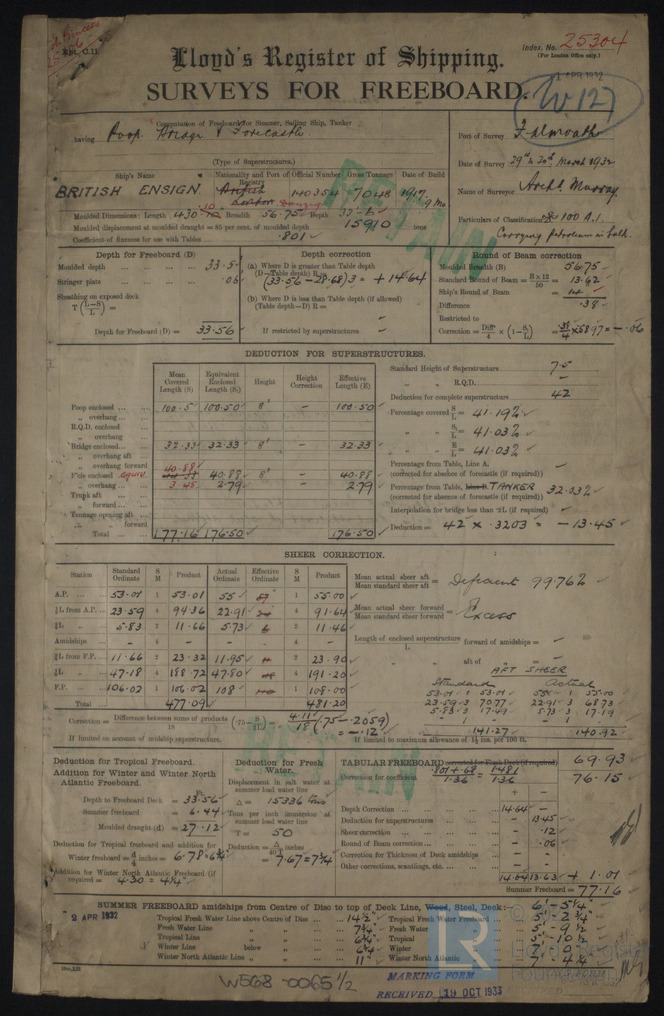 Rpt. C.11.
Index. No. 25304
(For London Office only.)
APR 1932
Lloyd's Register of Shipping.
SURVEYS FOR FREEBOARD.
W127
Computation of Freeboard for Steamer, Sailing Ship, Tanker
having Poop Bridge & Forecastle
(Type of Superstructures.)
Port of Survey Falmouth
Date of Survey 29th & 30th March 1932
Name of Surveyor Archd. Murray
Particulars of Classification 100 A.1.
Carrying petroleum in bulk.
Ship's Name Nationality and Port of Registry Official Number Gross Tonnage Date of Build
BRITISH ENSIGN British London 140354 7048 1917
Moulded Dimensions: Length 430.10 Breadth 56.75 Depth 33.5
Moulded displacement at moulded draught = 85 per cent. of moulded depth 15910 tons
Coefficient of fineness for use with Tables .801
RETAIN
Depth for Freeboard (D)
Moulded depth 33.5
Stringer plate .06
Sheathing on exposed deck
T (L-S/L) =
Depth for Freeboard (D) = 33.56
Depth correction
(a) Where D is greater than Table depth
(D-Table depth) R =
(33.56 - 28.68) 3 = + 14.64
(b) Where D is less than Table depth (if allowed)
(Table depth-D) R =
If restricted by superstructures
Round of Beam correction
Moulded Breadth (B) 56.75
Standard Round of Beam = B × 12/50 = 13.62
Ship's Round of Beam = 14
Difference .38
Restricted to
Correction = Diff/4 × (1 - S/L) = .38/4 × 58.97 = - .06
DEDUCTION FOR SUPERSTRUCTURES.
Mean Covered Length (S) Equivalent Enclosed Length (S₁) Height Height Correction Effective Length (E)
Poop enclosed 100.5 100.50 8' - 100.50
" overhang
R.Q.D. enclosed
" overhang
Bridge enclosed 32.33 32.33 8' - 32.33
" overhang aft
" overhang forward
F'cle enclosed equiv. 40.88 40.88 8' - 40.88
" overhang 3.45 2.79 2.79
Trunk aft
" forward
Tonnage opening aft
" " forward
Total 177.16 176.50 176.50
Standard Height of Superstructure 7.5
" " R.Q.D. -
Deduction for complete superstructure 42
Percentage covered S/L = 41.19%
" " S₁/L = 41.03%
" " E/L = 41.03%
Percentage from Table, Line A.
(corrected for absence of forecastle (if required))
Percentage from Table, Line B. TANKER 32.03%
(corrected for absence of forecastle (if required))
Interpolation for bridge less than .2L (if required)
Deduction = 42 × .3203 = - 13.45
SHEER CORRECTION.
Station Standard Ordinate S M Product Actual Ordinate Effective Ordinate S M Product
A.P. 53.01 1 53.01 55 1 55.00
⅙L from A.P. 23.59 4 94.36 22.91 4 91.64
⅓L " 5.83 2 11.66 5.73 2 11.46
Amidships - 4 - - 4 -
⅓L from F.P. 11.66 2 23.32 11.95 2 23.90
⅙L " 47.18 4 188.72 47.80 4 191.20
F.P. 106.02 1 106.02 108 1 108.00
Total 477.09 481.20
Mean actual sheer aft / Mean standard sheer aft = Deficient 99.76%
Mean actual sheer forward / Mean standard sheer forward = Excess
Length of enclosed superstructure / L forward of amidships =
" " aft of " =
AFT SHEER
Standard Actual
53.01 · 1 53.01 55 · 1 55.00
23.59 · 3 70.77 22.91 · 3 68.73
5.83 · 3 17.49 5.73 · 3 17.19
141.27 140.92
Correction = Difference between sums of products / 18 (.75 - S/2L) = 4.11/18 (.75 - .2059) = - .12
If limited on account of midship superstructure.
If limited to maximum allowance of 1½ ins. per 100 ft.
RETAIN
Deduction for Tropical Freeboard.
Addition for Winter and Winter North Atlantic Freeboard.
Depth to Freeboard Deck = 33.56
Summer freeboard = 6.44
Moulded draught (d) = 27.12
Deduction for Tropical freeboard and addition for Winter freeboard = d/4 inches = 6.78 = 6¾"
Addition for Winter North Atlantic Freeboard (if required) = 4.30 = 4¼"
Deduction for Fresh Water.
Displacement in salt water at summer load water line
Δ = 15336 tons
Tons per inch immersion at summer load water line
T = 50
Deduction = Δ/40 T inches
= 7.67 = 7¾"
TABULAR FREEBOARD corrected for Flush Deck (if required) 69.93
Correction for coefficient .801 + .68 / 1.36 = 1.481 / 1.36 76.15
+ -
Depth Correction 14.64 -
Deduction for superstructures - 13.45
Sheer correction - .12
Round of Beam correction - .06
Correction for Thickness of Deck amidships - -
Other corrections, scantlings, etc. - -
14.64 13.63 + 1.01
Summer Freeboard = 77.16
SUMMER FREEBOARD amidships from Centre of Disc to top of Deck Line, Wood, Steel, Deck: 6' - 5¼"
2 APR 1932
Tropical Fresh Water Line above Centre of Disc 14½" Tropical Fresh Water Freeboard 5' - 2¾"
Fresh Water Line " " 7¾" Fresh Water " 5' - 9½"
Tropical Line " " 6¾" Tropical " 5' - 10½"
Winter Line below " " 6¾" Winter " 7' - 0"
Winter North Atlantic Line " " 11" Winter North Atlantic " 7' - 4¼"
W568-0065 1/2
MARKING FORM
RECEIVED 19 OCT 1933
© Lloyd's Register Foundation